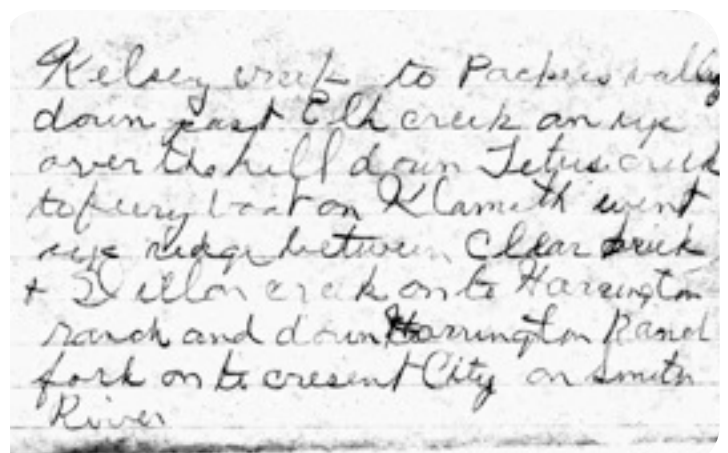 Kelsey creek to Packers vally
down past Elk creek an up
over the hill down Tetus creek
to ferry boat on Klamath went
up ridge between Clear creek
+ Dillon creek on to Harrington
ranch and down Harrington Ranch
fork on to cresent City on smith
River